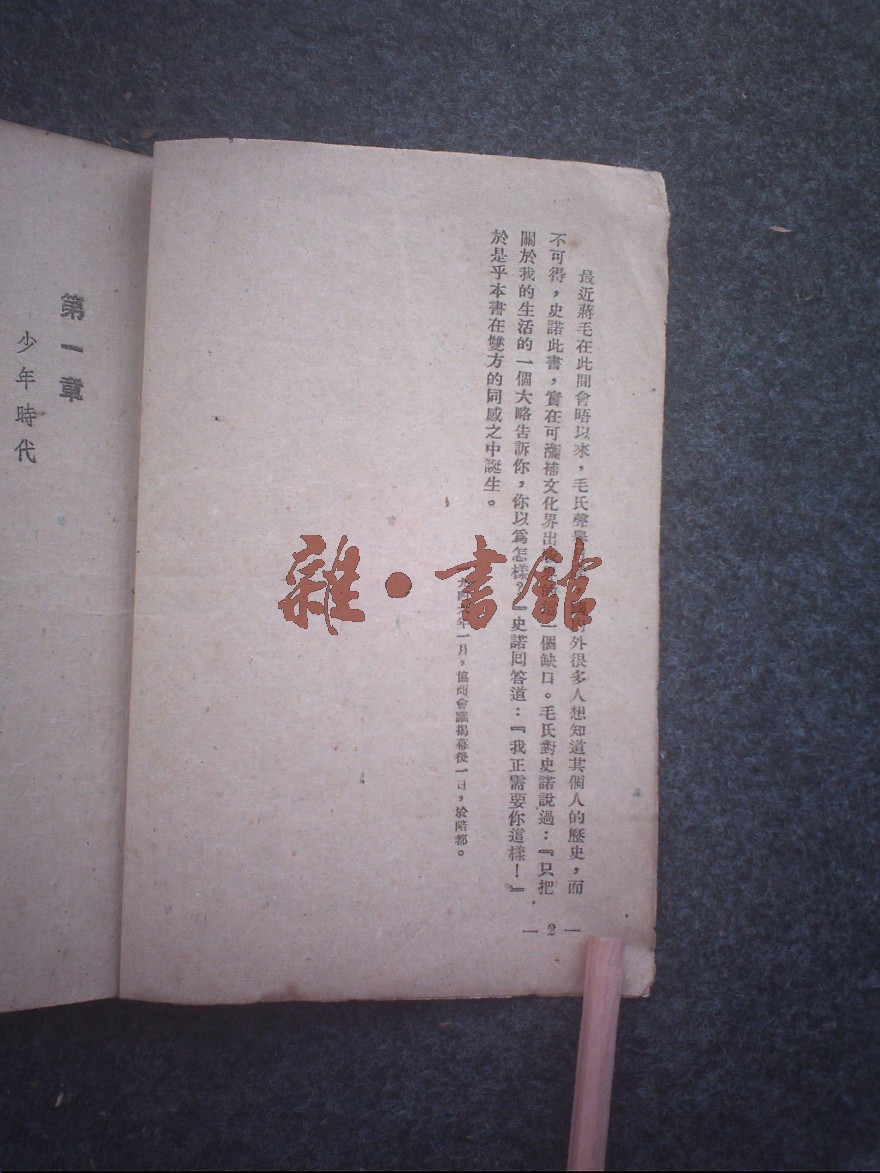 最近蔣毛在此間會晤以來，毛氏聲外很多人想知道其個人的歷史，而
不可得，史諾此書，實在可彌補文化界出一個缺口。毛氏對史諾說過：『只把
關於我的生活的一個大略告訴你，你以爲怎樣？』史諾回答道：『我正需要你這樣！』
於是乎本書在雙方的同感之中誕生。
年一月，協商會議揭幕後一日，於陪都。
— 2 —
第一章
少年時代
雜·書館